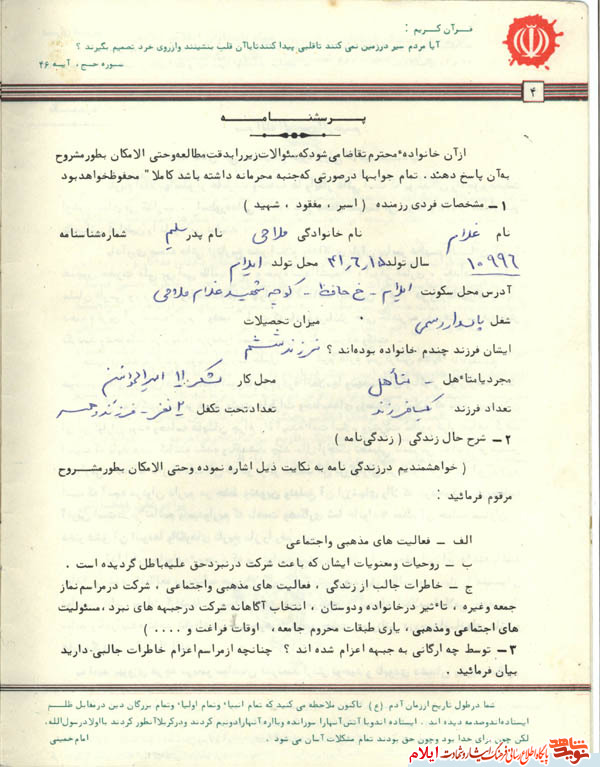 قرآن کریم :
آیا مردم سیر در زمین نمی کنند تا قلبی پیدا کنند تا با آن قلب بینشیند و از روی خرد تصمیم بگیرند ؟
سوره حج ، آیه ۴۶
۴
پرسشنامه
از آن خانواده محترم تقاضا می شود که سئوالات زیر را بدقت مطالعه و حتی الامکان بطور مشروح
به آن پاسخ دهند . تمام جوابها در صورتی که جنبه محرمانه داشته باشد کاملا" محفوظ خواهد بود
۱ – مشخصات فردی رزمنده ( اسیر ، مفقود ، شهید )
نام غلام نام خانوادگی ملاحی نام پدر سلیم شماره شناسنامه
۱۰۹۹۶ سال تولد ۴۱٫۶٫۱۵ محل تولد ایلام
آدرس محل سکونت ایلام - خ حافظ - کوچه شهید غلام ملاحی
شغل پاسدار رسمی میزان تحصیلات
ایشان فرزند چندم خانواده بوده اند ؟ فرزند ششم
مجرد یا متاهل – متأهل محل کار لشکر ۱۱ امیرالمؤمنین
تعداد فرزند یک فرزند تعداد تحت تکفل ۲ نفر - فرزند و همسر
۲ – شرح حال زندگی ( زندگی نامه )
( خواهشمندیم در زندگی نامه به نکایت ذیل اشاره نموده و حتی الامکان بطور مشروح
مرقوم فرمائید :
الف – فعالیت های مذهبی و اجتماعی
ب – روحیات و معنویات ایشان که باعث شرکت در نبرد حق علیه باطل گردیده است .
ج – خاطرات جالب از زندگی ، فعالیت های مذهبی و اجتماعی ، شرکت در مراسم نماز
جمعه و غیره ، تاثیر در خانواده و دوستان ، انتخاب آگاهانه شرکت در جبهه های نبرد ، مسئولیت
های اجتماعی و مذهبی ، یاری طبقات محروم جامعه ، اوقات فراغت و . . . . )
۳ – توسط چه ارگانی به جبهه اعزام شده اند ؟ چنانچه از مراسم اعزام خاطرات جالبی دارید
بیان فرمائید .
شما در طول تاریخ از زمان آدم . (ع) تاکنون ملاحظه می کنید که تمام انبیاء و تمام اولیاء و تمام بزرگان دین در مقابل ظلم
ایستاده اند و صدمه دیده اند . ایستاده اند و با آتش آنها را سوزانده و با اره آنها را دو نیم کردند و در کربلا آنطور کردند با اولاد رسول الله .
لکن چون برای خدا بود و چون حق بودند تمام مشکلات آسان می شود . امام خمینی
نوید شاهد پایگاه اطلاع رسانی فرهنگ ایثار و شهادت ایلام